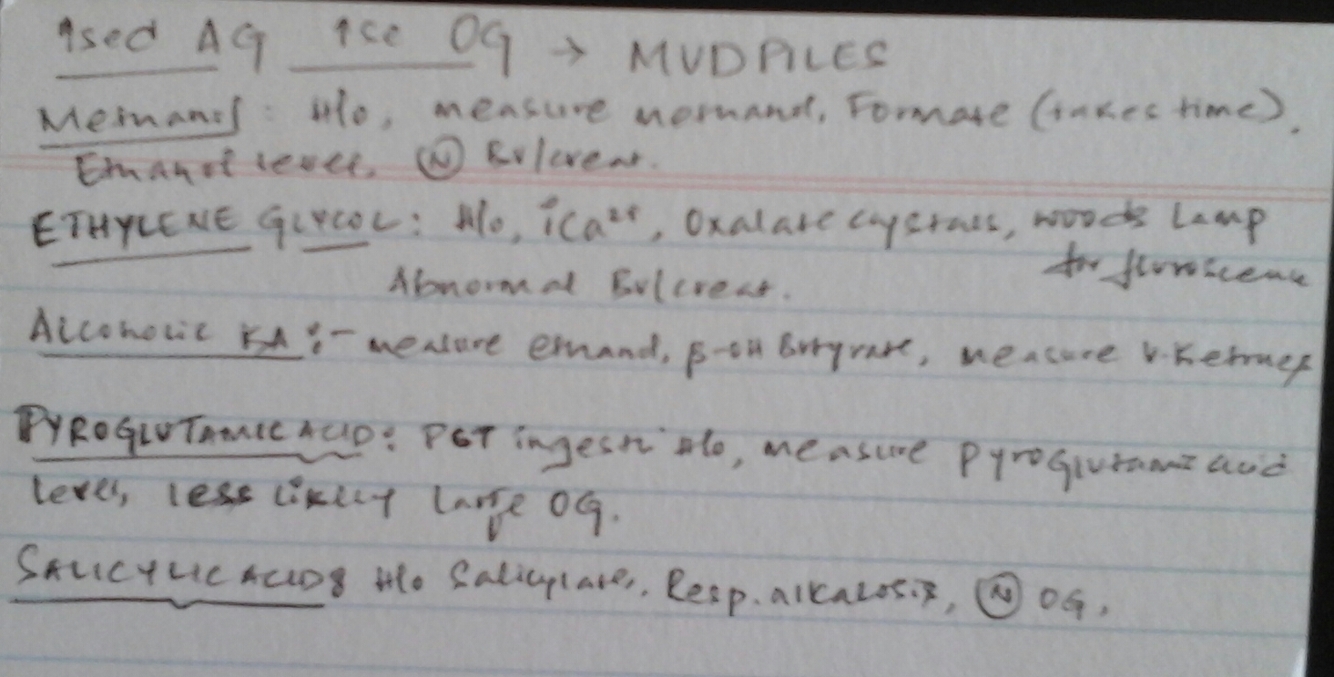 ↑sed AG ↑se OG → MUDPILES
Methanol: H/o, measure methanol, Formate (takes time),
Ethanol level, Ⓝ BU/creat.
ETHYLENE GLYCOL: H/o, iCa²⁺, Oxalate crystals, woods Lamp
for fluroscence
Abnormal BU/creat.
Alcoholic KA:- measure ethanol, β-OH Butyrate, measure U.Ketones
PYROGLUTAMIC ACID: PCT ingestn H/o, measure pyroglutamic acid
level, less likely large OG.
SALICYLIC ACID: H/o Salicylates, Resp. alkalosis, Ⓝ OG,